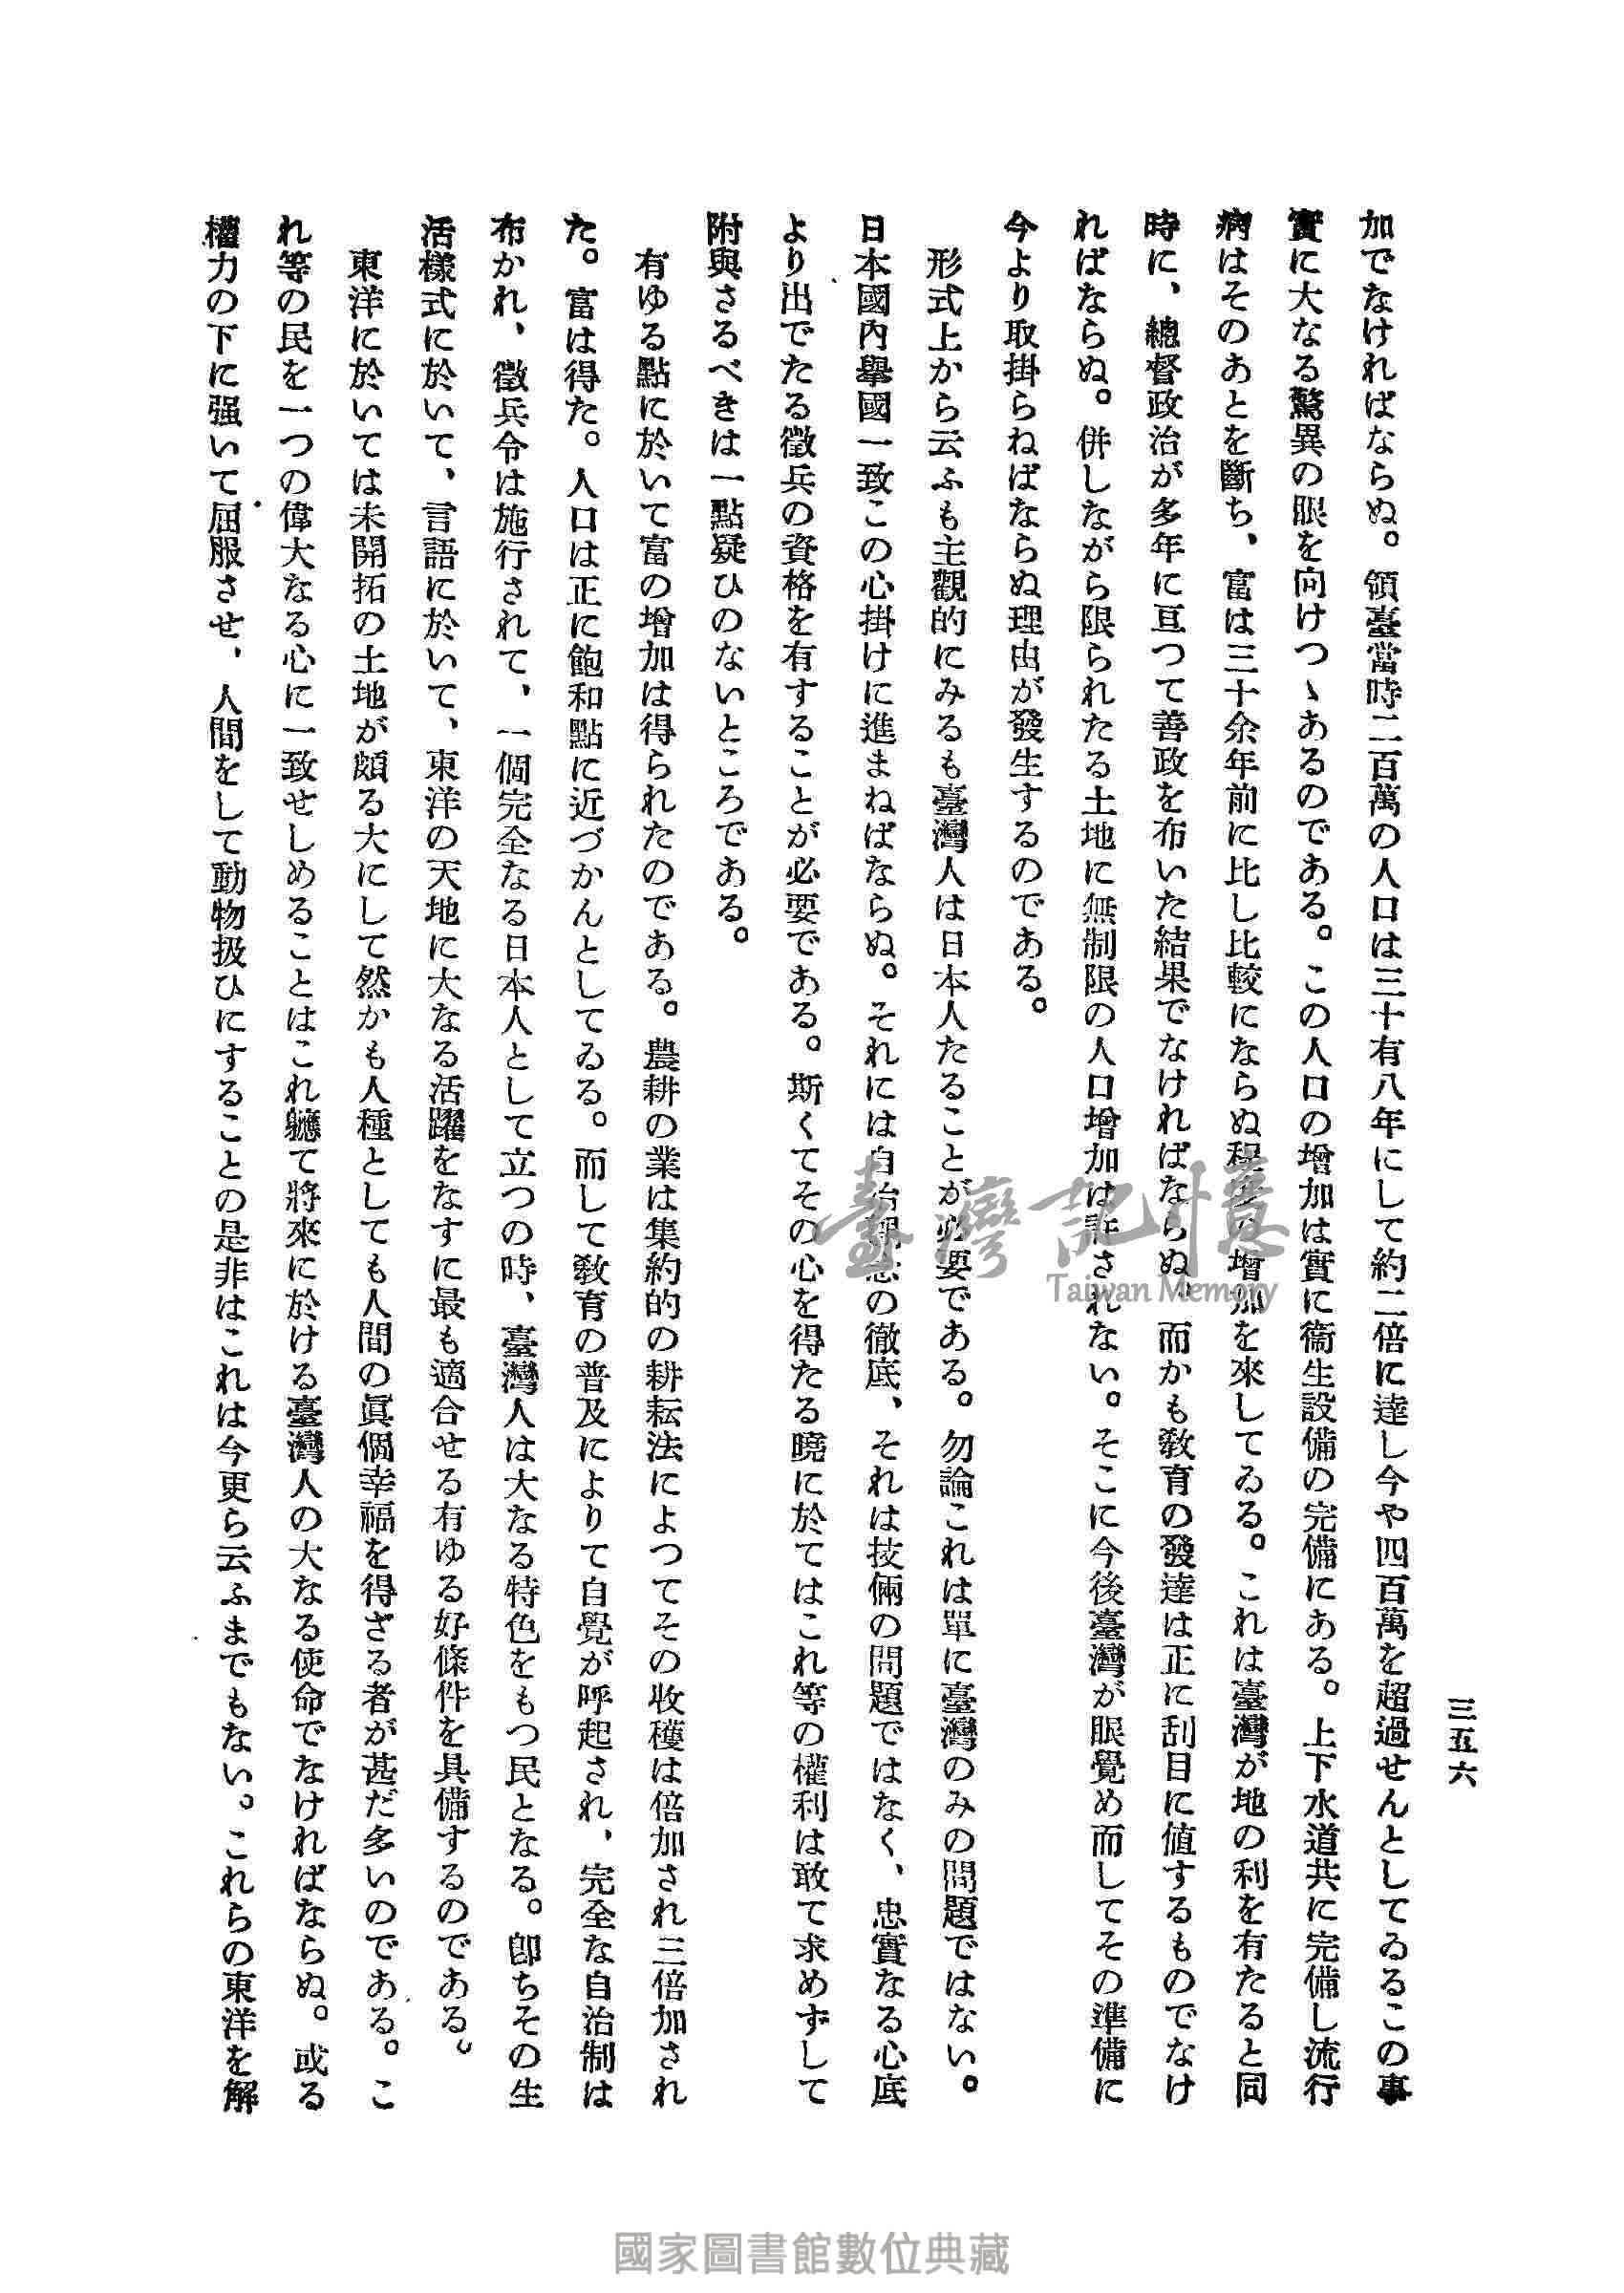 三五六
加でなければならぬ。領臺當時二百萬の人口は三十有八年にして約二倍に達し今や四百萬を超過せんとしてゐるこの事
實に大なる驚異の眼を向けつゝあるのである。この人口の增加は實に衞生設備の完備にある。上下水道共に完備し流行
病はそのあとを斷ち、富は三十余年前に比し比較にならぬ程の增加を來してゐる。これは臺灣が地の利を有たると同
時に、總督政治が多年に亘つて善政を布いた結果でなければならぬ。而かも敎育の發達は正に刮目に値するものでなけ
ればならぬ。併しながら限られたる土地に無制限の人口增加は許されない。そこに今後臺灣が眼覺め而してその準備に
今より取掛らねばならぬ理由が發生するのである。
形式上から云ふも主觀的にみるも臺灣人は日本人たることが必要である。勿論これは單に臺灣のみの問題ではない。
日本國內擧國一致この心掛けに進まねばならぬ。それには自治の徹底、それは技倆の問題ではなく、忠實なる心底
より出でたる徵兵の資格を有することが必要である。斯くてその心を得たる曉に於てはこれ等の權利は敢て求めずして
附與さるべきは一點疑ひのないところである。
有ゆる點に於いて富の增加は得られたのである。農耕の業は集約的の耕耘法によつてその收穫は倍加され三倍加され
た。富は得た。人口は正に飽和點に近づかんとしてゐる。而して敎育の普及によりて自覺が呼起され、完全な自治制は
布かれ、徵兵令は施行されて、一個完全なる日本人として立つの時、臺灣人は大なる特色をもつ民となる。卽ちその生
活樣式に於いて、言語に於いて、東洋の天地に大なる活躍をなすに最も適合せる有ゆる好條件を具備するのである。
東洋に於いては未開拓の土地が頗る大にして然かも人種としても人間の眞個幸福を得ざる者が甚だ多いのである。こ
れ等の民を一つの偉大なる心に一致せしめることはこれ軈て將來に於ける臺灣人の大なる使命でなければならぬ。或る
權力の下に强いて屈服させ、人間をして動物扱ひにすることの是非はこれは今更ら云ふまでもない。これらの東洋を解
臺灣記憶
Taiwan Memory
國家圖書館數位典藏